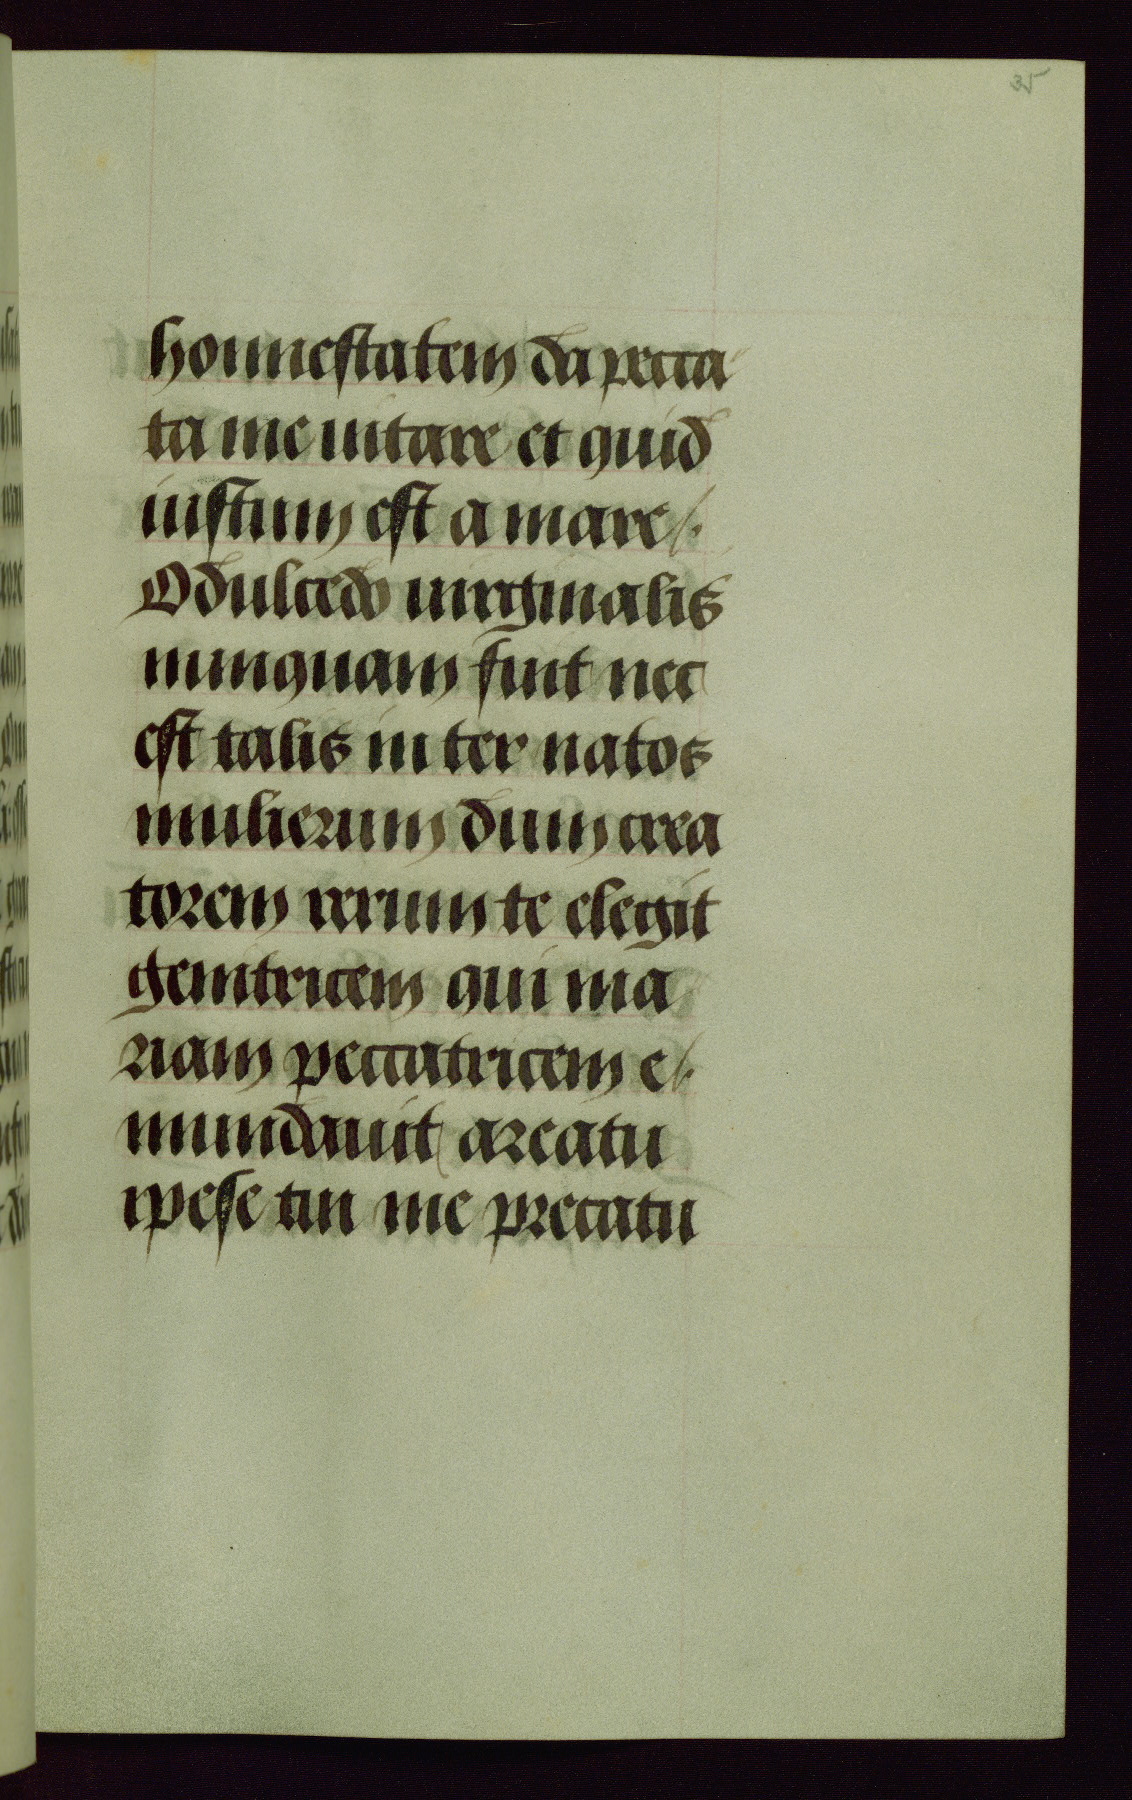 35
honnestatem da pecca
ta me uitare et quid
iustum est a mare /.
O dulcedo uirginalis
nunquam fuit nec
est talis in ter natos
mulierum dum crea
torem rerum te elegit
genitricem qui ma
riam peccatricem e /.
mundauit a reatu
ipese tui me precatu